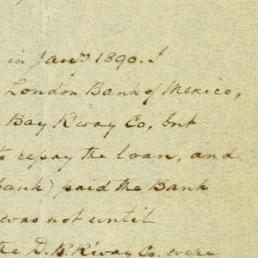 in Jany 1890. I
London Bank of Mexico,
Bay R'way Co, but
to repay the loan, and
bank) paid the Bank
was not until
the D. B. R'way Co. were